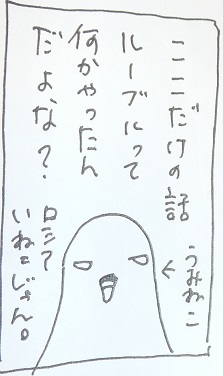 ここだけの話
ルーブルって
何かやったん
だよな？
うみねこ
ロシア
いねぇじゃん。